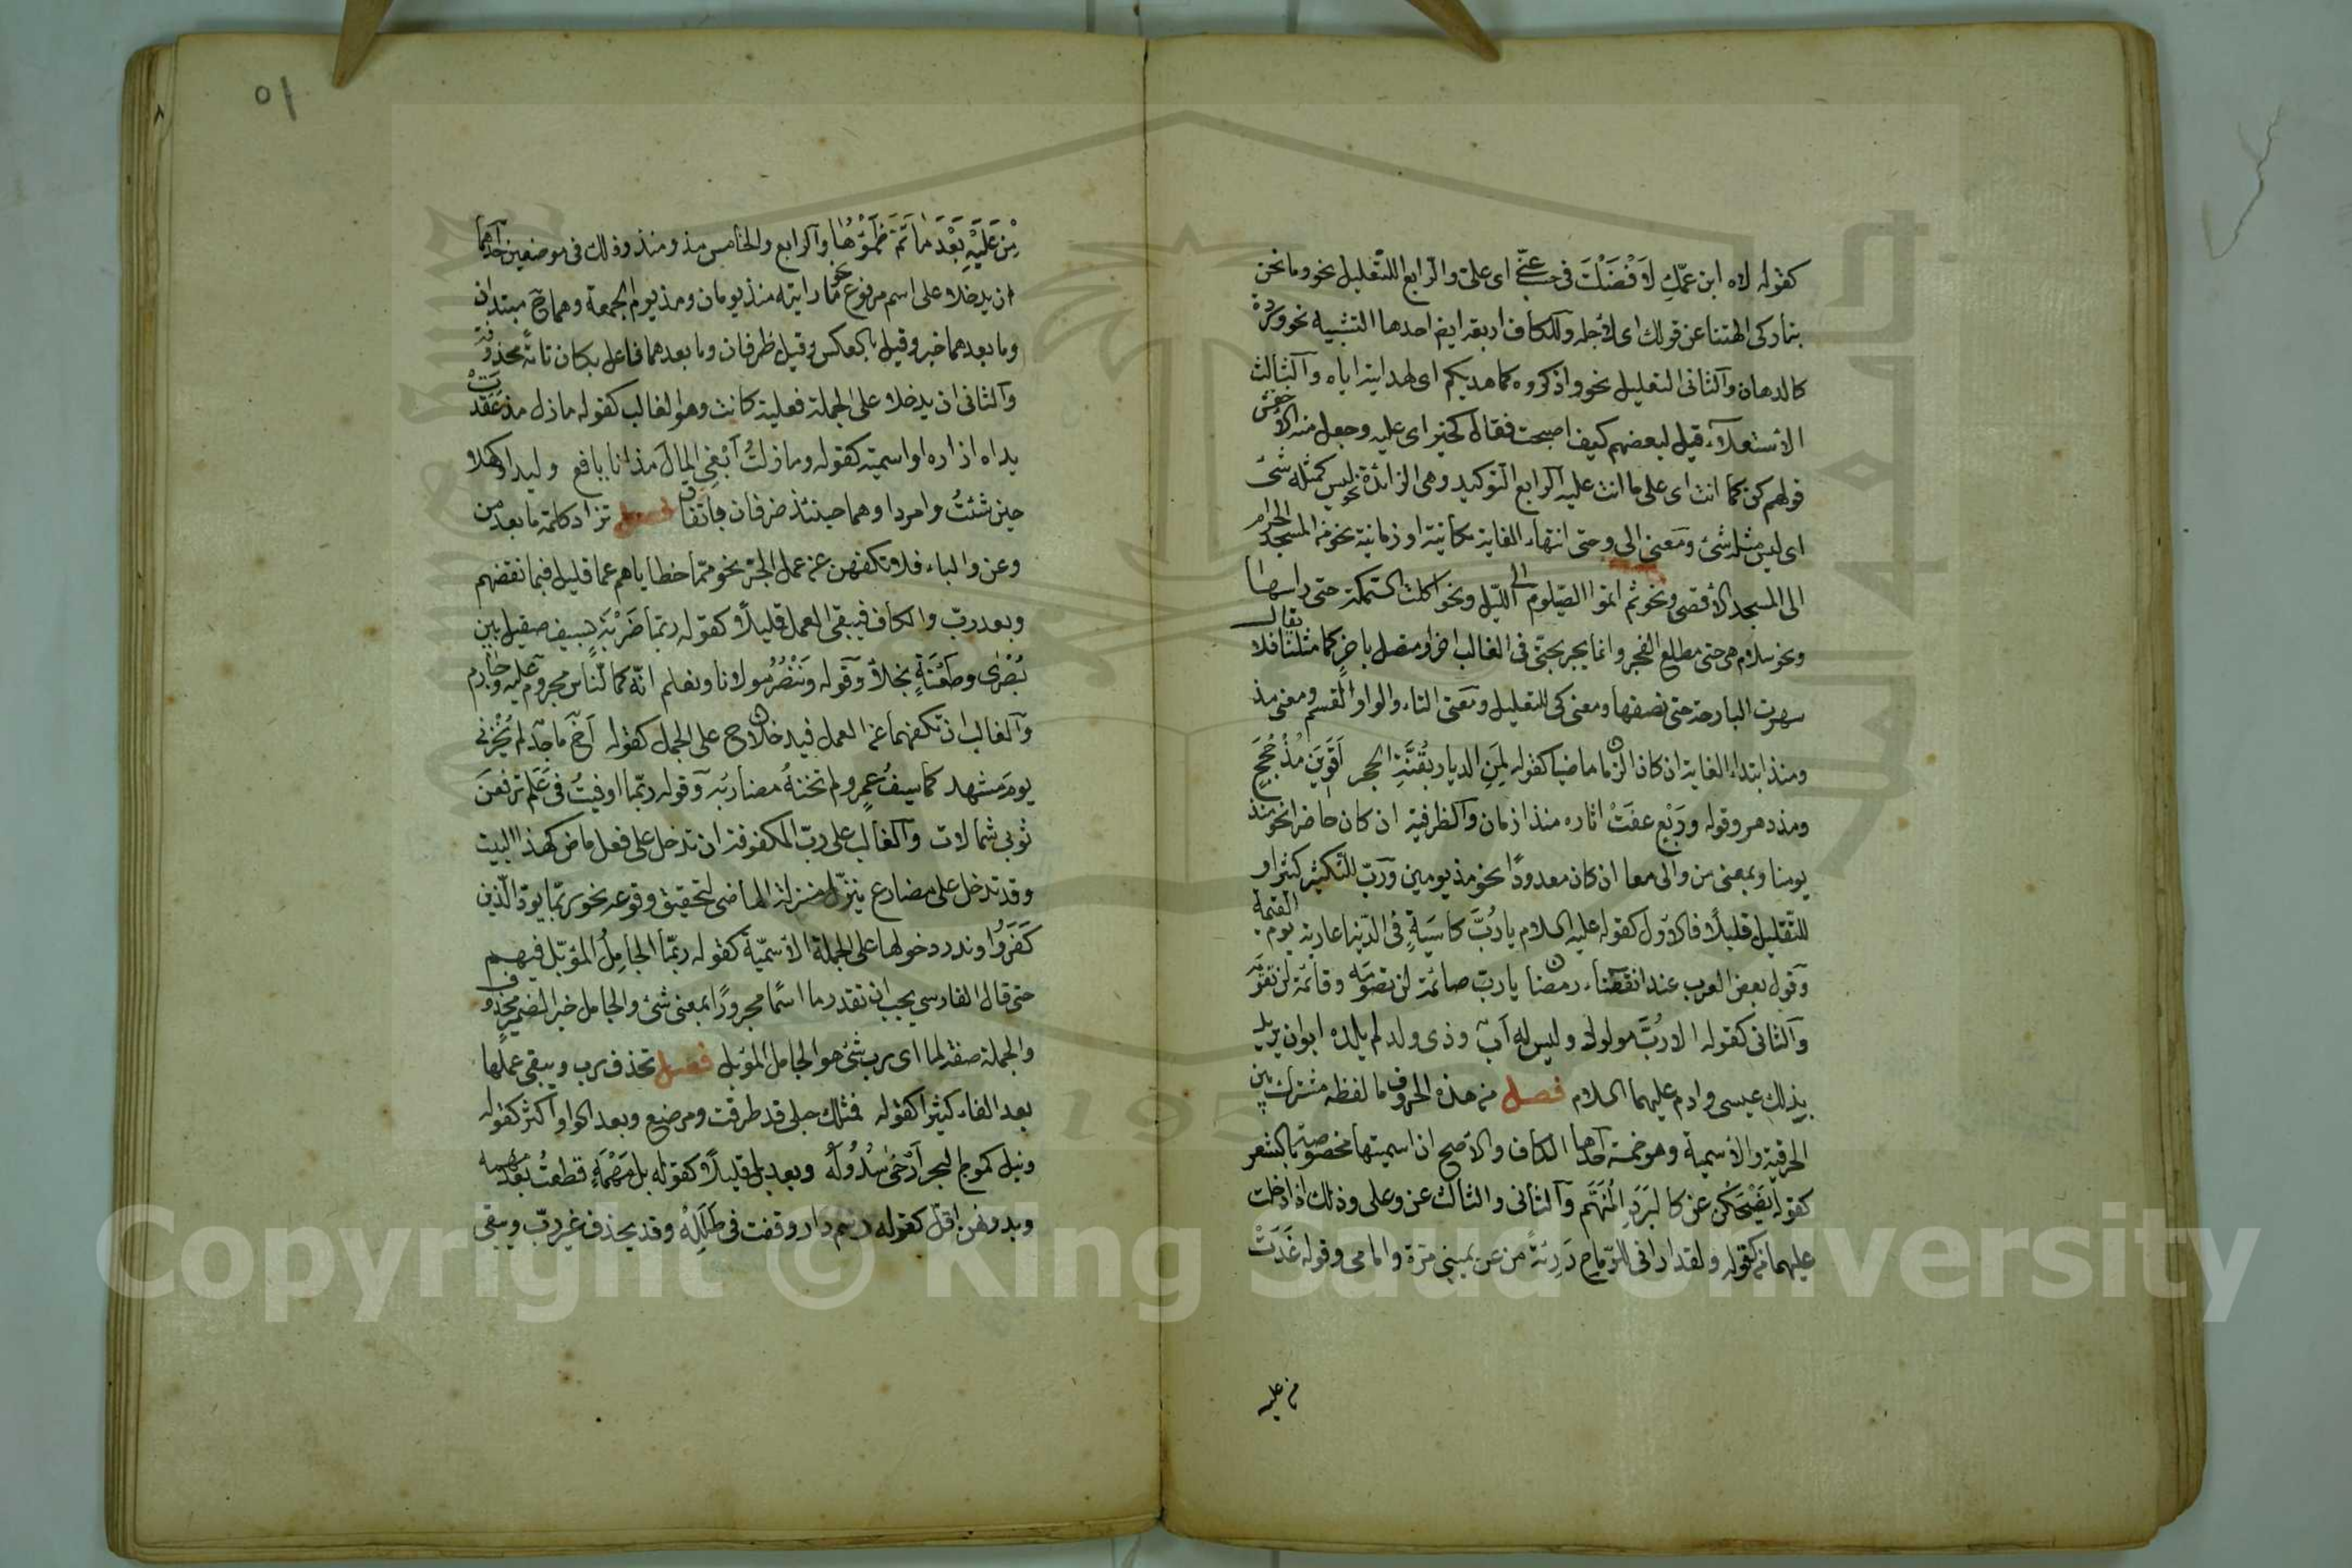 كقوله لاه ابن عمّك لا فْضَلْتَ فى حسبٍ عنّى اى علىّ والرابع للتعليل نحو وما نحن
بتاركى الهتنا عن قولك اى لأجله وللكاف اربعة ايضا احدها التشبيه نحو وردة
كالدهان والثانى التعليل نحو واذكروه كما هديكم اى لهدايته اياه والثالث
الاستعلاء قيل لبعضهم كيف اصبحت فقال كخير اى عليه وجعل منه الاخفش
قولهم كن كما انت اى على ما انت عليه الرابع التوكيد وهى الزائدة نحو ليس كمثله شئ
اى ليس مثله شئ ومعنى الى وحتى انتهاء الغاية مكانية او زمانية نحو من المسجد الحرام
الى المسجد الاقصى ونحو ثم اتموا الصيام الى الليل ونحو اكلت السمكة حتى راسها
ونحو سلام هى حتى مطلع الفجر وانما يجر بحتى فى الغالب اخر او متصل باخر كما مثلنا فلا يقال
سهرت البارحة حتى نصفها ومعنى كى التعليل ومعنى التاء والواو القسم ومعنى مذ
ومنذ ابتداء الغاية ان كان الزمان ماضيا كقوله لِمَنِ الديار بقُنَّةِ الحجر اَقْوَيْنَ مُذْ حُجَجٍ
ومذ دهر وقوله ورَبْع عفَتْ اثاره منذ ازمان والظرفية ان كان حاضرا نحو منذ
يومنا وبمعنى من والى معا ان كان معدودًا نحو مذ يومين وربّ للتكثير كثيرا و
للتقليل قليلًا فالاوّل كقوله عليه السلام يا رُبَّ كاسيةٍ فى الدنيا عارية يوم القيمة
وقول بعض العرب عند انقضاء رمضان يا ربّ صائمة لن تصومه وقائمة لن تقومه
والثانى كقوله الا رُبَّ مولود وليس له اَبٌ وذى ولد لم يلده ابوان يريد
بذلك عيسى وادم عليهما السلام فصل من هذه الحروف ما لفظه مشترك بين
الحرفية والاسمية وهو خمسة احدها الكاف والاصح ان اسميتها مخصوصة بالشعر
كقوله يَضْحَكْنَ عن كالبَرَدِ المُنْهَمِّ والثانى والثالث عن وعلى وذلك اذا دخلت
عليهما من كقوله ولقد ارانى للرماح دَرِيْئَةً من عن يمينى مرّة وامامى وقوله غَدَتْ
من عليه
٥١
مِنْ عَلَيْهِ بَعْدَ مَا تَمَّ ظَمْؤُهَا والرابع والخامس مذ ومنذ وذلك فى موضعين احدهما
ان يدخلا على اسم مرفوع نحو ما رايته منذ يومان ومذ يوم الجمعة وهما ح مبتدان
وما بعدهما خبر وقيل بالعكس وقيل ظرفان وما بعدهما فاعل بكان تامّة محذوفة
والثانى ان يدخلا على الجملة فعلية كانت وهو الغالب كقوله ما زال مذ عَقَدَتْ
يداه ازاره او اسمية كقوله وما زلتُ اَبْغى المالَ مذ انا يافع وليدا وكهلا
حين شئتُ وامردا وهما حينئذ ظرفان باتفاق فصل تزاد كلمة ما بعد من
وعن والباء فلا تكفهن عن عمل الجرّ نحو ممّا خطاياهم عما قليل فبما نقضهم
وبعد ربّ والكاف فيبقى العمل قليلًا كقوله ربّما ضَرْبَةٍ بسيف صقيل بين
بُصْرى وطَعْنَةٍ نجلاء وقوله ونَنْصُرُ مولانا ونعلم انّه كما النّاس مجروم عليه وجارم
والغالب ان تكفهما عن العمل فيدخلان ح على الجمل كقوله اَخٌ ماجدٌ لم يُخْزِنى
يومَ مشهد كما سيفُ عمرٍو لم تخنهُ مضاربُه وقوله ربّما اوفيتُ فى عَلَم ترفعَن
ثوبى شمالات والغالب على ربّ المكفوفة ان تدخل على فعل ماض كهذا البيت
وقد تدخل على مضارع ينزّل منزلة الماضى لتحقيق وقوعه نحو ربّما يودّ الّذين
كَفَرُوا وندر دخولها على الجملة الاسميّة كقوله ربّما الجامِلُ المؤبّل فيهم
حتى قال الفارسى يجب ان تقدر ما اسمًا مجرورًا بمعنى شئ والجامل خبرا لضمير محذوف
والجملة صفة لما اى رب شئ هو الجامل المؤبل فصل تحذف رب ويبقى عملها
بعد الفاء كثيرا كقوله فمثلك حبلى قد طرقت ومرضع وبعد الواو اكثر كقوله
وليل كموج البحر اَرْخى سُدُولَهُ وبعد بل قليلًا كقوله بل مَهْمَهٍ قطعتُ بعد مهمه
وبدونهن اقلّ كقوله رسم دار وقفت فى طَلَلِهْ وقد يحذف غير ربّ ويبقى
Copyright © King Saud University
1957